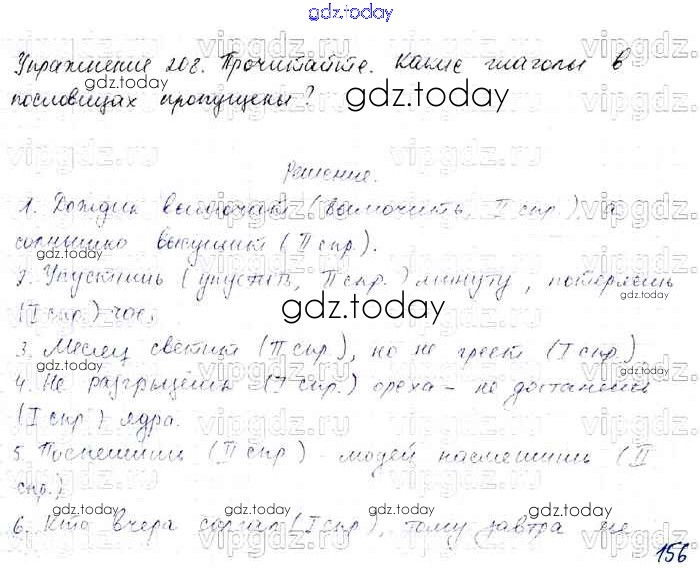 gdz.today
Упражнение 208. Прочитайте. Какие глаголы в
пословицах пропущены?
gdz.today
Решение.
1. Дождик вымочит (вымочить, II спр.), а
солнышко высушит (II спр.).
gdz.today
2. Упустишь (упустить, II спр.) минуту, потеряешь
(I спр.) час.
gdz.today
3. Месяц светит (II спр.), но не греет (I спр.)
4. Не разгрызёшь (I спр.) ореха – не достанешь
gdz.today
(I спр.) ядра.
5. Поспешишь (II спр.) людей насмешишь (II
спр.)
gdz.today gdz.today
6. Кто вчера солгал (I спр.), тому завтра не
156